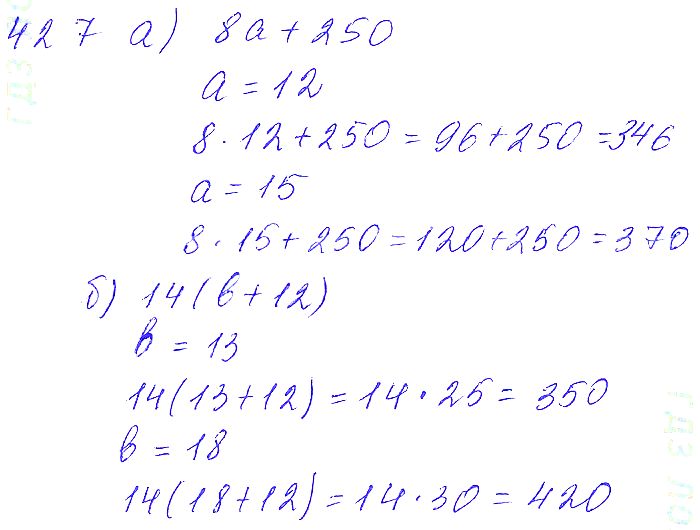 427 а) 8a + 250
a = 12
8 · 12 + 250 = 96 + 250 = 346
a = 15
8 · 15 + 250 = 120 + 250 = 370
б) 14(b + 12)
b = 13
14(13 + 12) = 14 · 25 = 350
b = 18
14(18 + 12) = 14 · 30 = 420